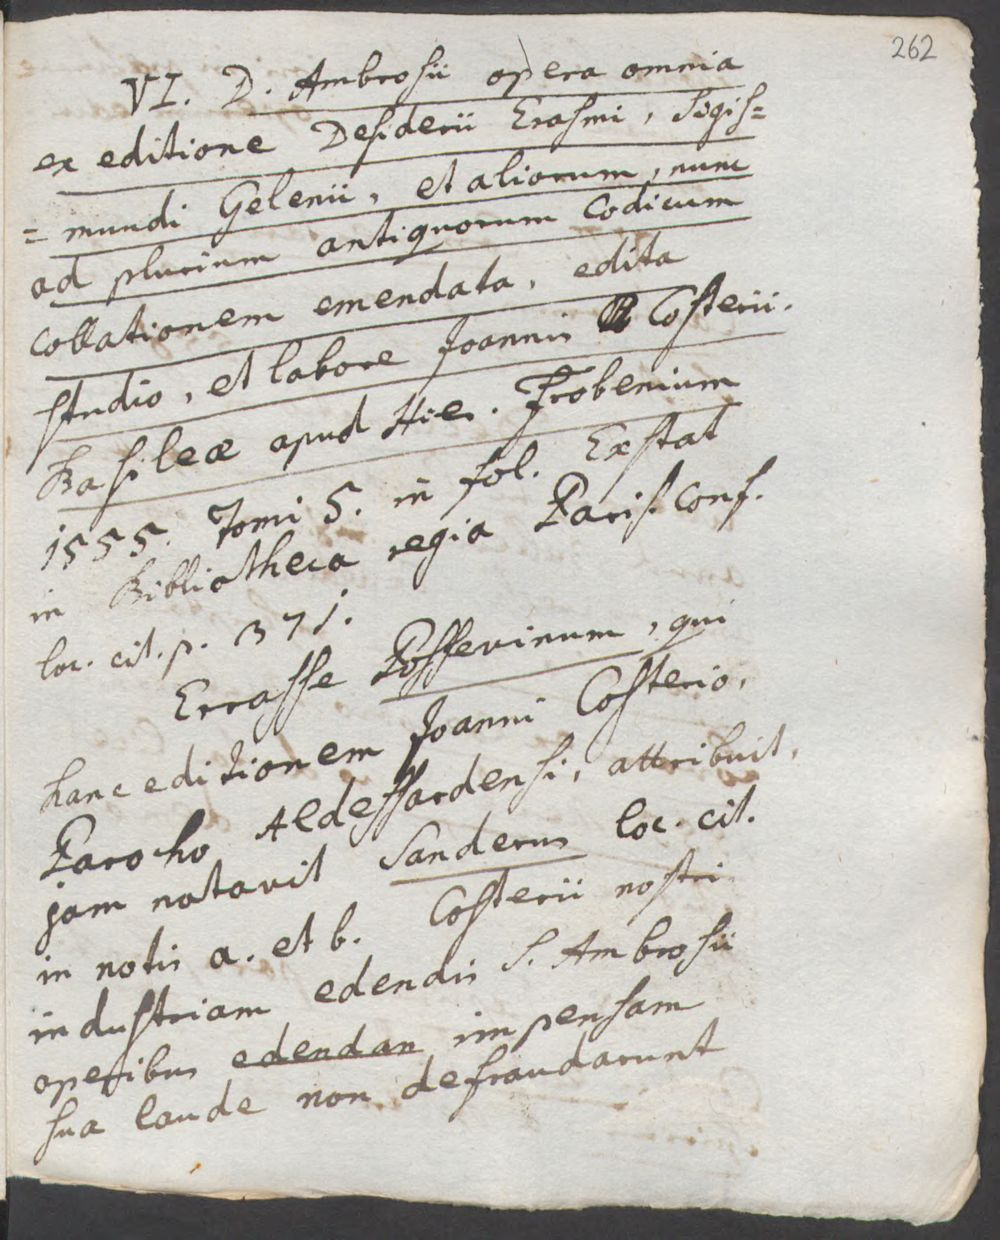 262
VI. D. Ambrosii opera omnia
ex editione Desiderii Erasmi, Sigis=
=mundi Gelenii, et aliorum, nunc
ad plurium antiquorum Codicum
collationem emendata, edita
studio, et labore Joannis Costerii.
Basileæ apud Hier. Frobenium
1555. Tomi 5. in fol. Exstat
in Bibliotheca regia Paris. conf.
loc. cit. p. 371.
Errasse Possevinum, qui
hanc editionem Joanni Costerio,
Parocho Aldessardensi, attribuit,
jam notavit Sanderus loc. cit.
in notis a. et b. Costerii nostri
industriam edendis S. Ambrosii
operibus edendan impensam
sua laude non defraudarunt